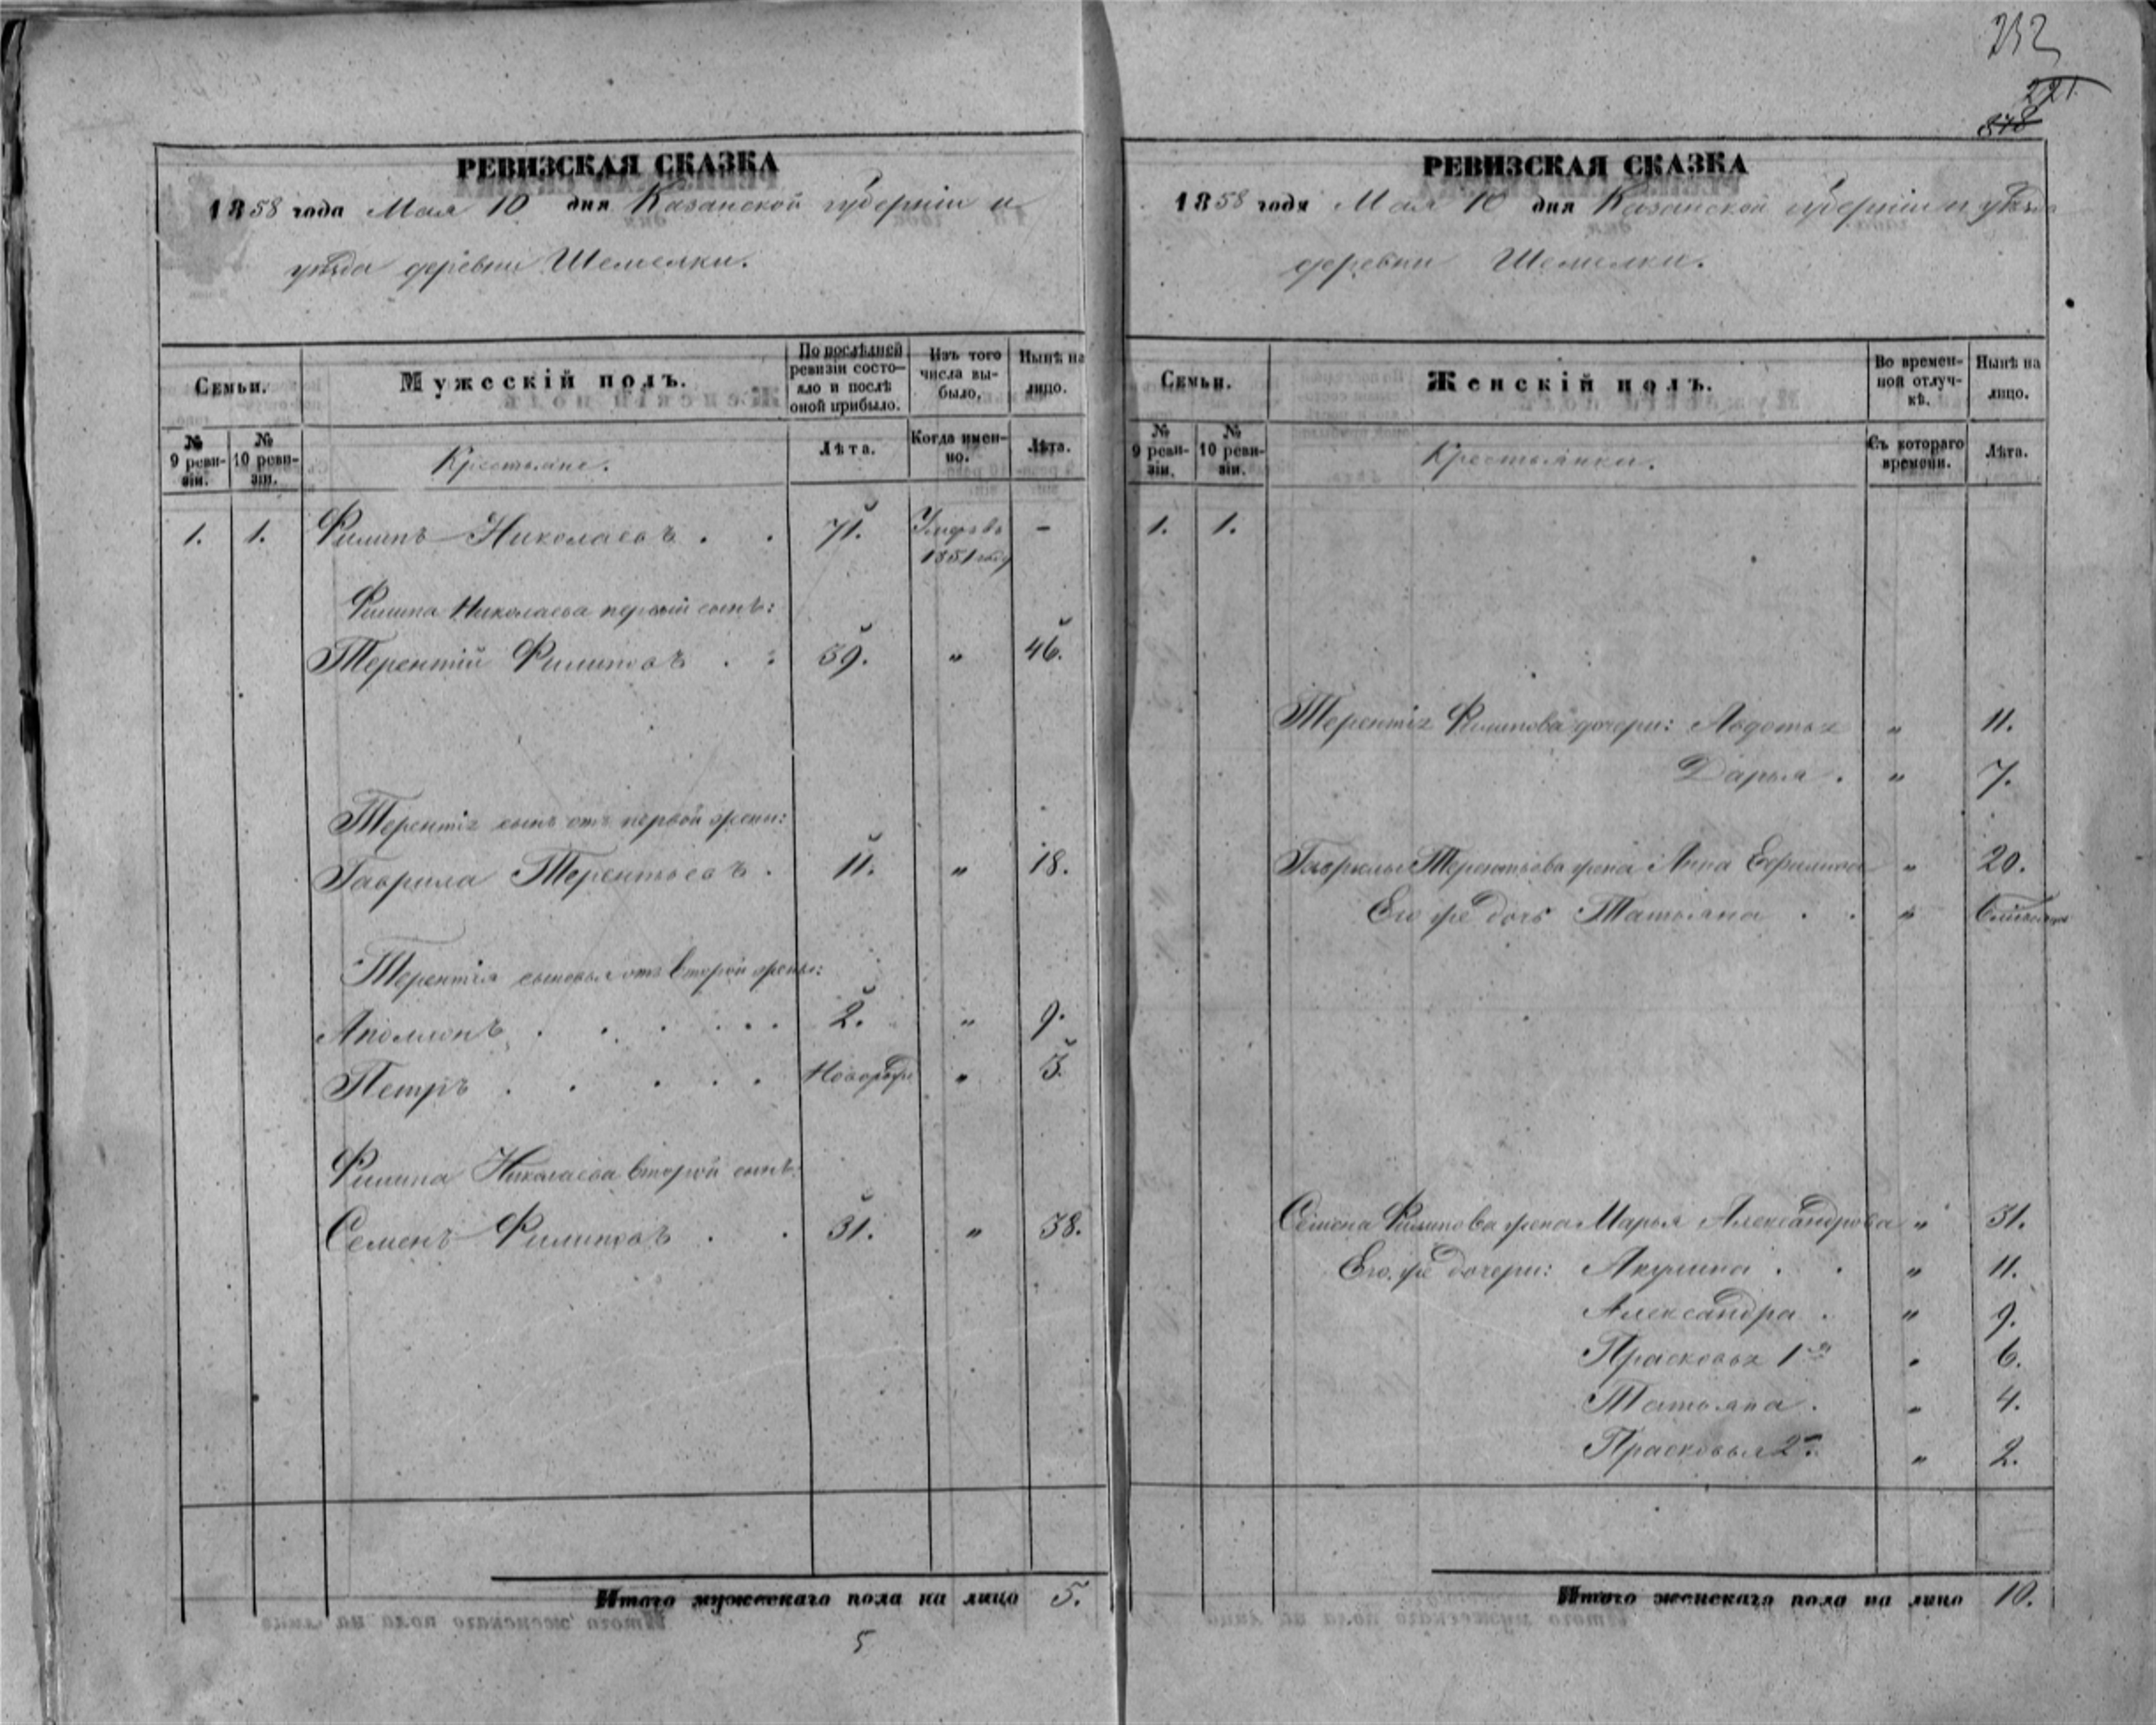 252
221
878
РЕВИЗСКАЯ СКАЗКА
1858 года Мая 10 дня Казанской губерніи и
уѣзда деревни Шемелки.
Семьи.
Мужескій полъ.
По послѣдней ревизіи состояло и послѣ оной прибыло.
Изъ того числа выбыло.
Нынѣ на лицо.
№ 9 ревизіи.
№ 10 ревизіи.
Крестьяне.
Лѣта.
Когда именно.
Лѣта.
1. 1. Филипъ Николаевъ . . 71. Умеръ въ 1851 году –
Филипа Николаева первый сынъ:
Терентій Филиповъ . . 39. " 46.
Терентія сынъ отъ первой жены:
Гаврила Терентьевъ . 11. " 18.
Терентія сыновья отъ второй жены:
Аполлонъ . . . . . . 2. " 9.
Петръ . . . . . Новорожд " 3.
Филипа Николаева второй сынъ
Семенъ Филиповъ . . 31. " 38.
Итого мужескаго пола на лицо 5.
5
РЕВИЗСКАЯ СКАЗКА
1858 года Мая 10 дня Казанской губерніи и уѣзда
деревни Шемелки.
Семьи.
Женскій полъ.
Во временной отлучкѣ.
Нынѣ на лицо.
№ 9 ревизіи.
№ 10 ревизіи.
Крестьянки.
Съ котораго времени.
Лѣта.
1. 1.
Терентія Филипова дочери: Авдотья " 11.
Дарья . " 7.
Гаврилы Терентьева жена Анна Ефимова " 20.
Его же дочь Татьяна . . "
Семена Филипова жена Марья Александрова " 31.
Его же дочери: Акулина . . " 11.
Александра . " 9.
Прасковья 1я " 6.
Татьяна . " 4.
Прасковья 2я " 2.
Итого женскаго пола на лицо 10.